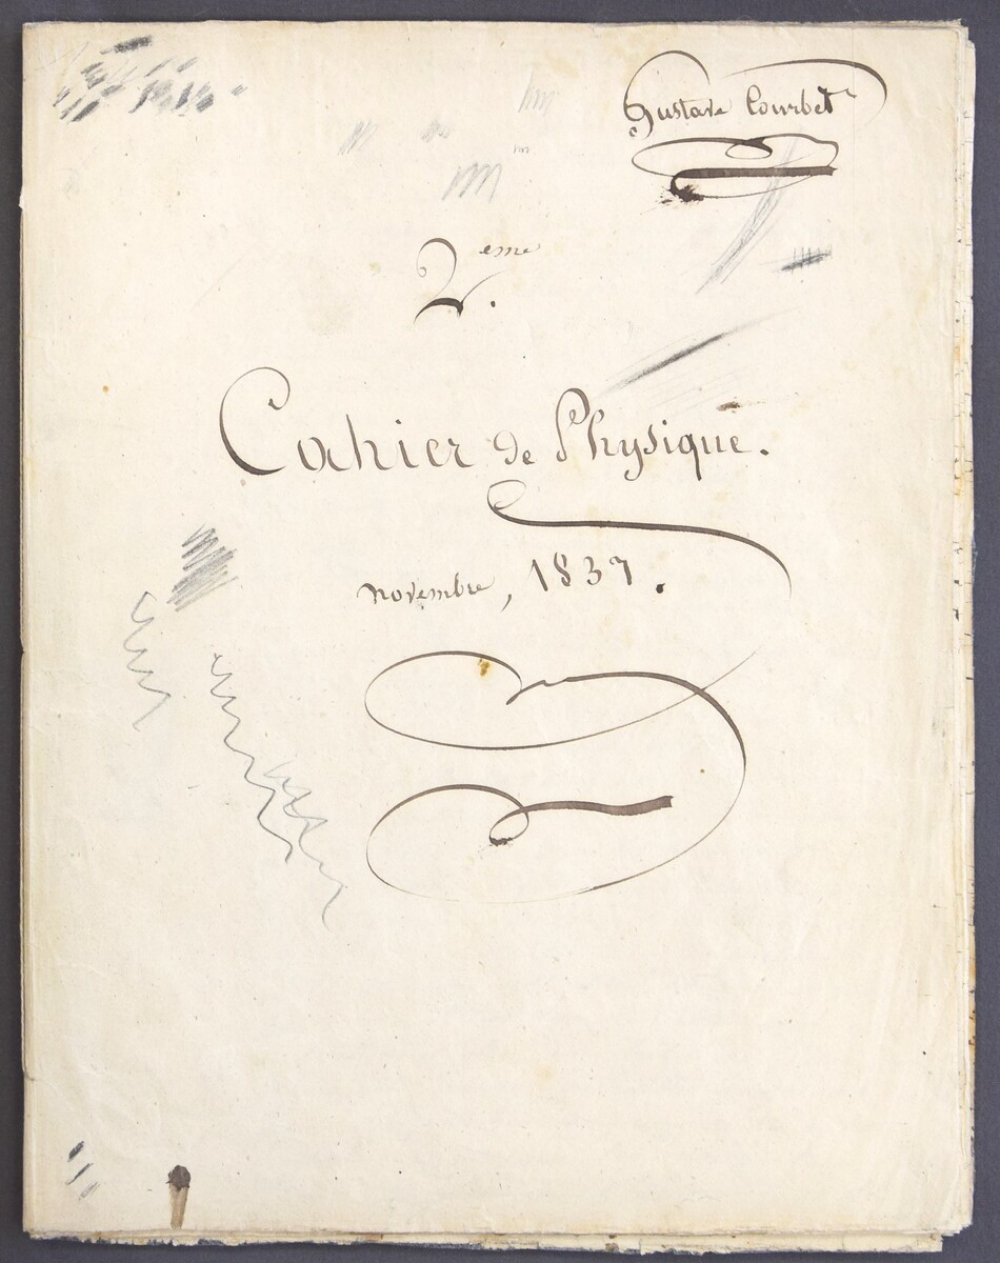 Gustave Courbet
2.eme
Cahier de Physique.
novembre, 1837.